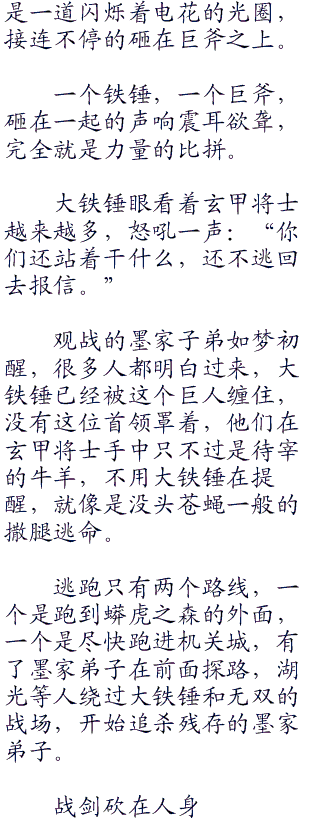 是一道闪烁着电花的光圈，
接连不停的砸在巨斧之上。
一个铁锤，一个巨斧，
砸在一起的声响震耳欲聋，
完全就是力量的比拼。
大铁锤眼看着玄甲将士
越来越多，怒吼一声：“你
们还站着干什么，还不逃回
去报信。”
观战的墨家子弟如梦初
醒，很多人都明白过来，大
铁锤已经被这个巨人缠住，
没有这位首领罩着，他们在
玄甲将士手中只不过是待宰
的牛羊，不用大铁锤在提
醒，就像是没头苍蝇一般的
撒腿逃命。
逃跑只有两个路线，一
个是跑到蟒虎之森的外面，
一个是尽快跑进机关城，有
了墨家弟子在前面探路，湖
光等人绕过大铁锤和无双的
战场，开始追杀残存的墨家
弟子。
战剑砍在人身